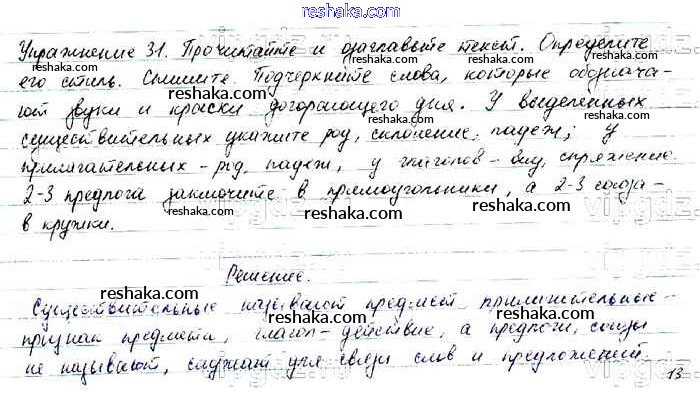 reshaka.com
Упражнение 31. Прочитайте и озаглавьте текст. Определите
его стиль. Спишите. Подчеркните слова, которые обознача-
ют звуки и краски догорающего дня. У выделенных
существительных укажите род, склонение, падеж; у
прилагательных - род, падеж, у глаголов - вид, спряжение.
2-3 предлога заключите в прямоугольники, а 2-3 союза -
в кружки.
Решение.
Существительные называют предмет, прилагательные -
признак предмета, глагол - действие, а предлоги, союзы
не называют, служат для связи слов и предложений.
13